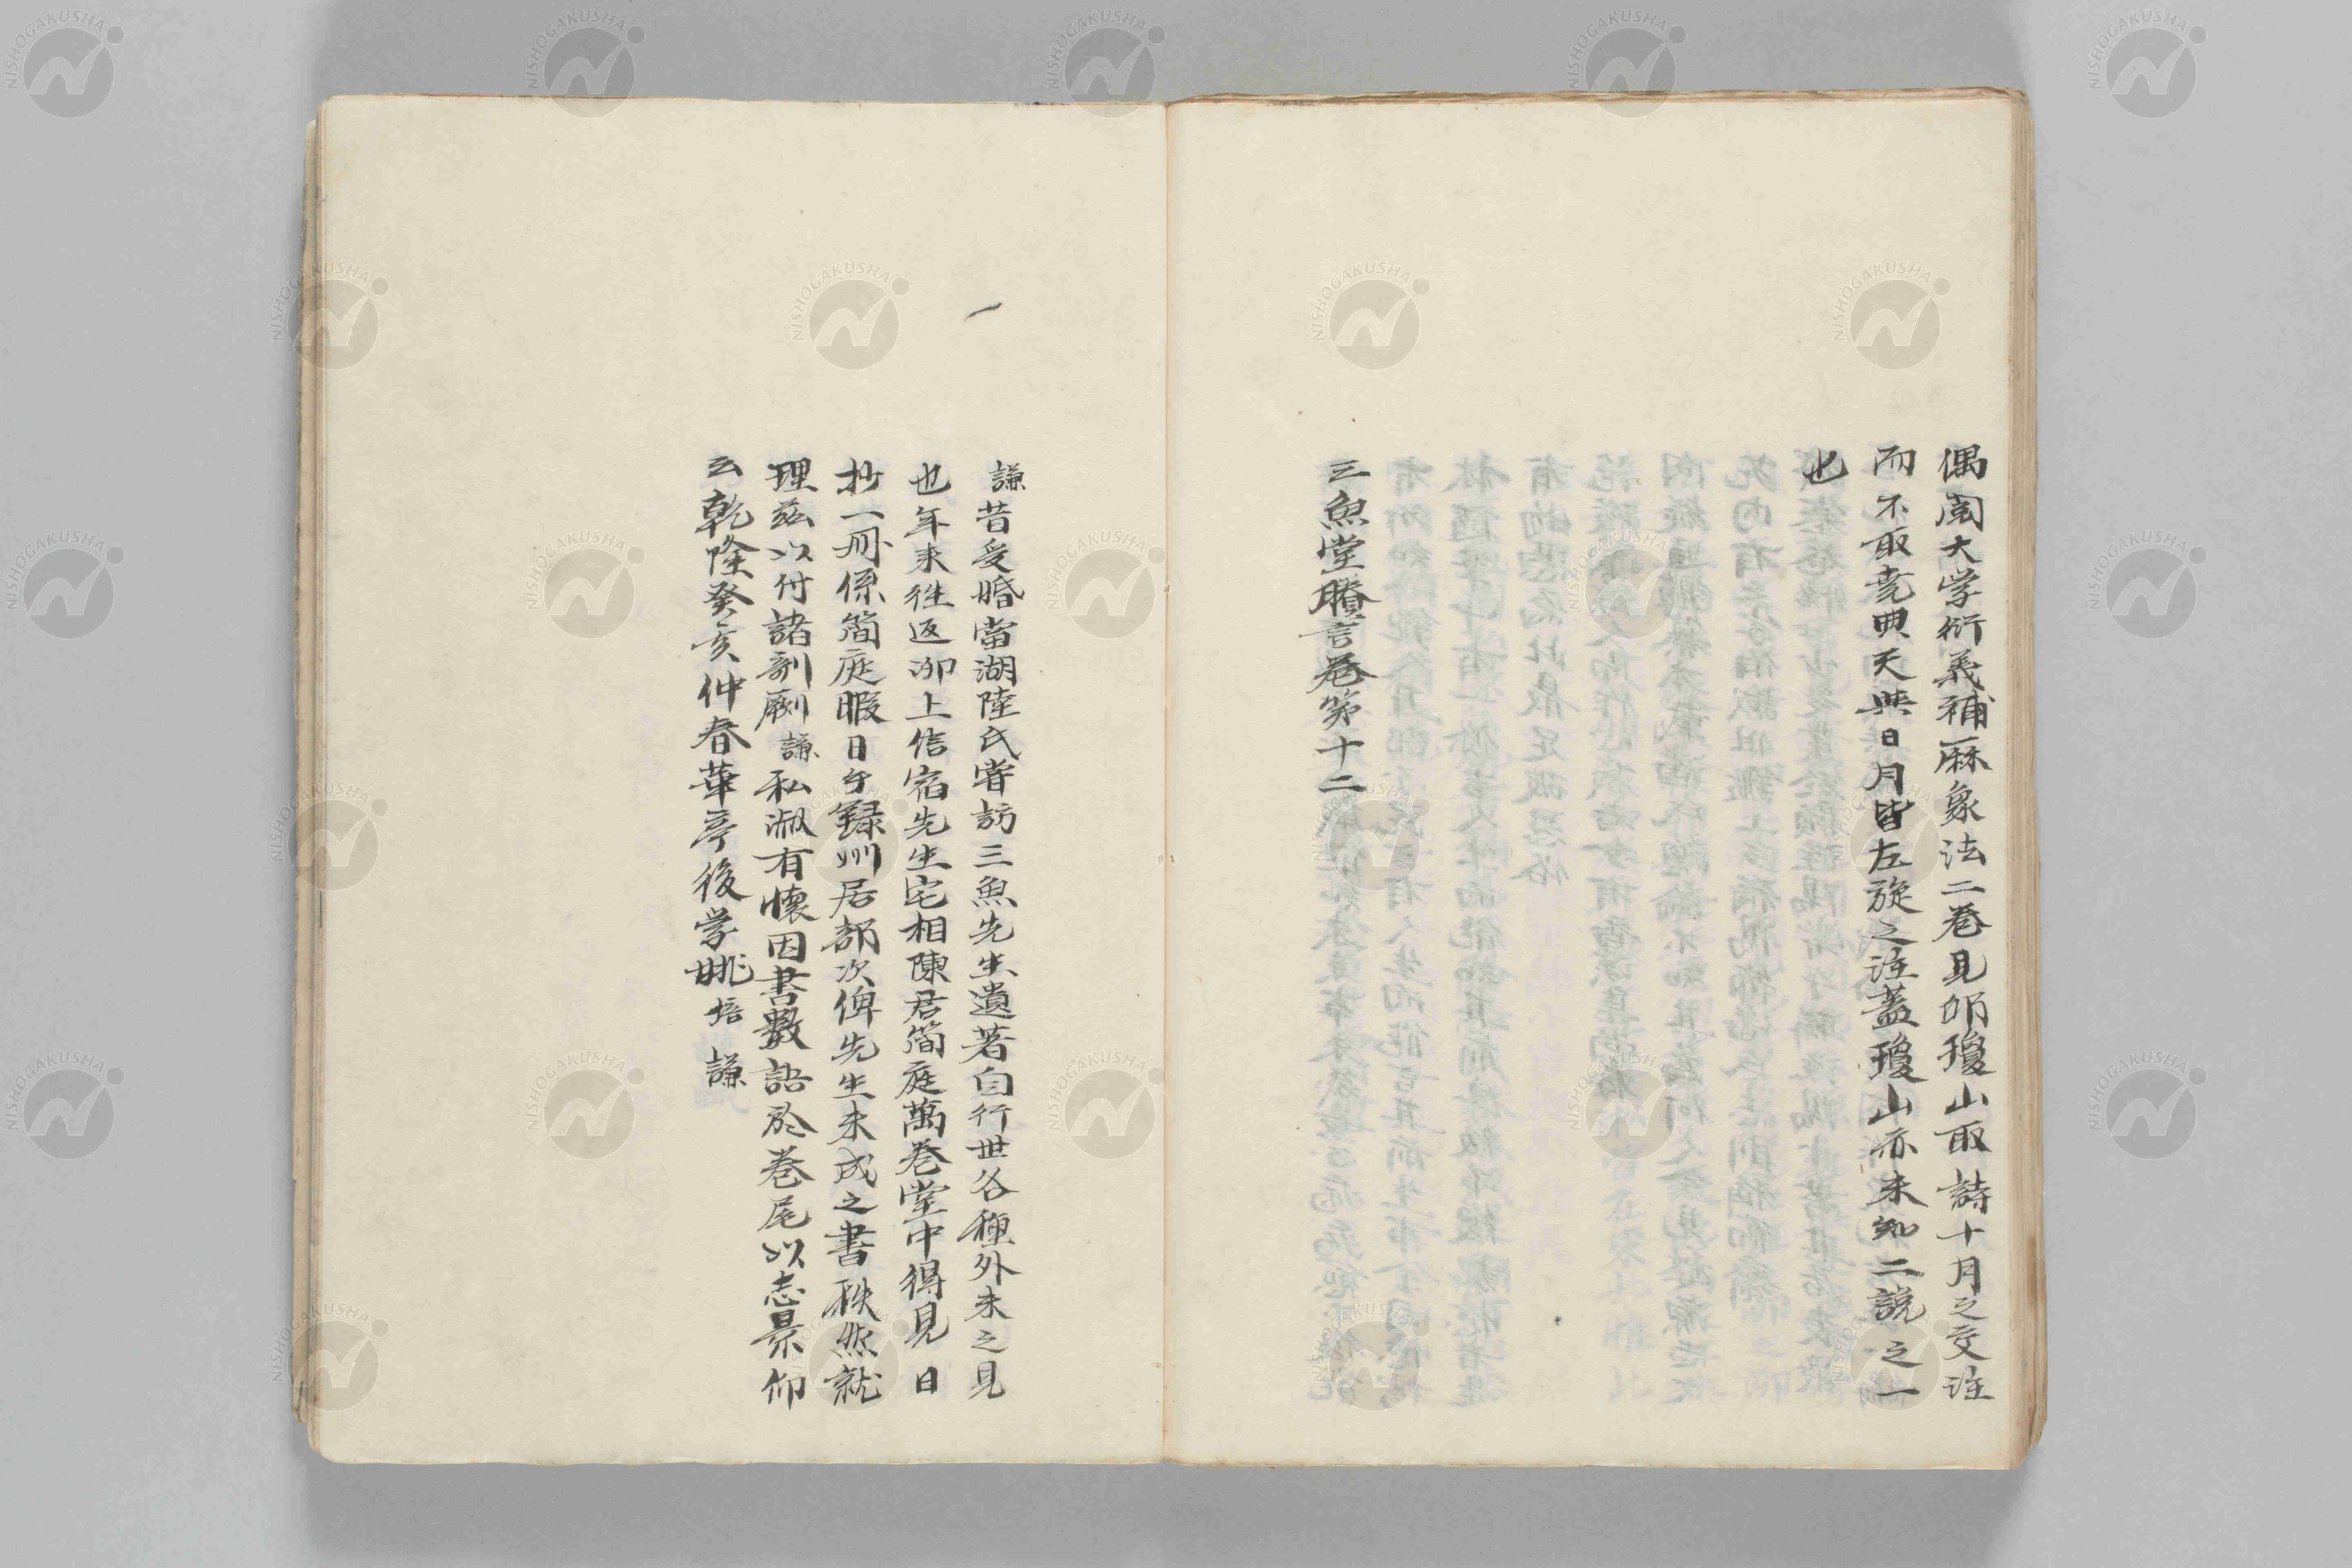 偶閲大学衍義補厤象法二巻見邱瓊山取詩十月之交注
而不取尭典天與日月皆左旋之注蓋瓊山亦未知二説之一
也
三魚堂賸言巻第十二
謙昔受婚當湖陸氏甞訪三魚先生遺著自行世各種外未之見
也年来徃返泖上信宿先生宅相陳君簡庭萬巻堂中得見日
抄一冊係簡庭暇日手録刪居部次俾先生未成之書秩然就
理茲以付諸剞劂謙私淑有懐因書數語於巻尾以志景仰
云乾隆癸亥仲春華亭後学姚培謙